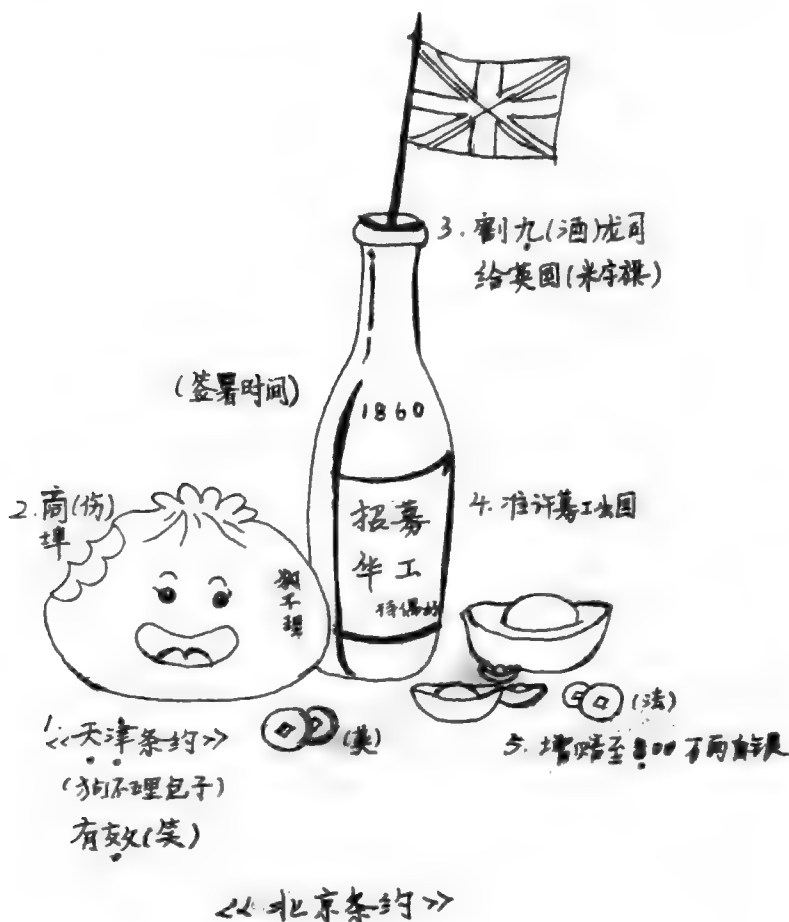 3. 割九(酒)龙司
给英国(米字旗)
(签署时间)
1860
招募
华工
待遇好
4. 准许募工出国
2. 商(伤)
埠
狗不理
1.
《天津条约》
(狗不理包子)
有效(笑)
(英)
(法)
5. 增赔至800万两白银
《北京条约》